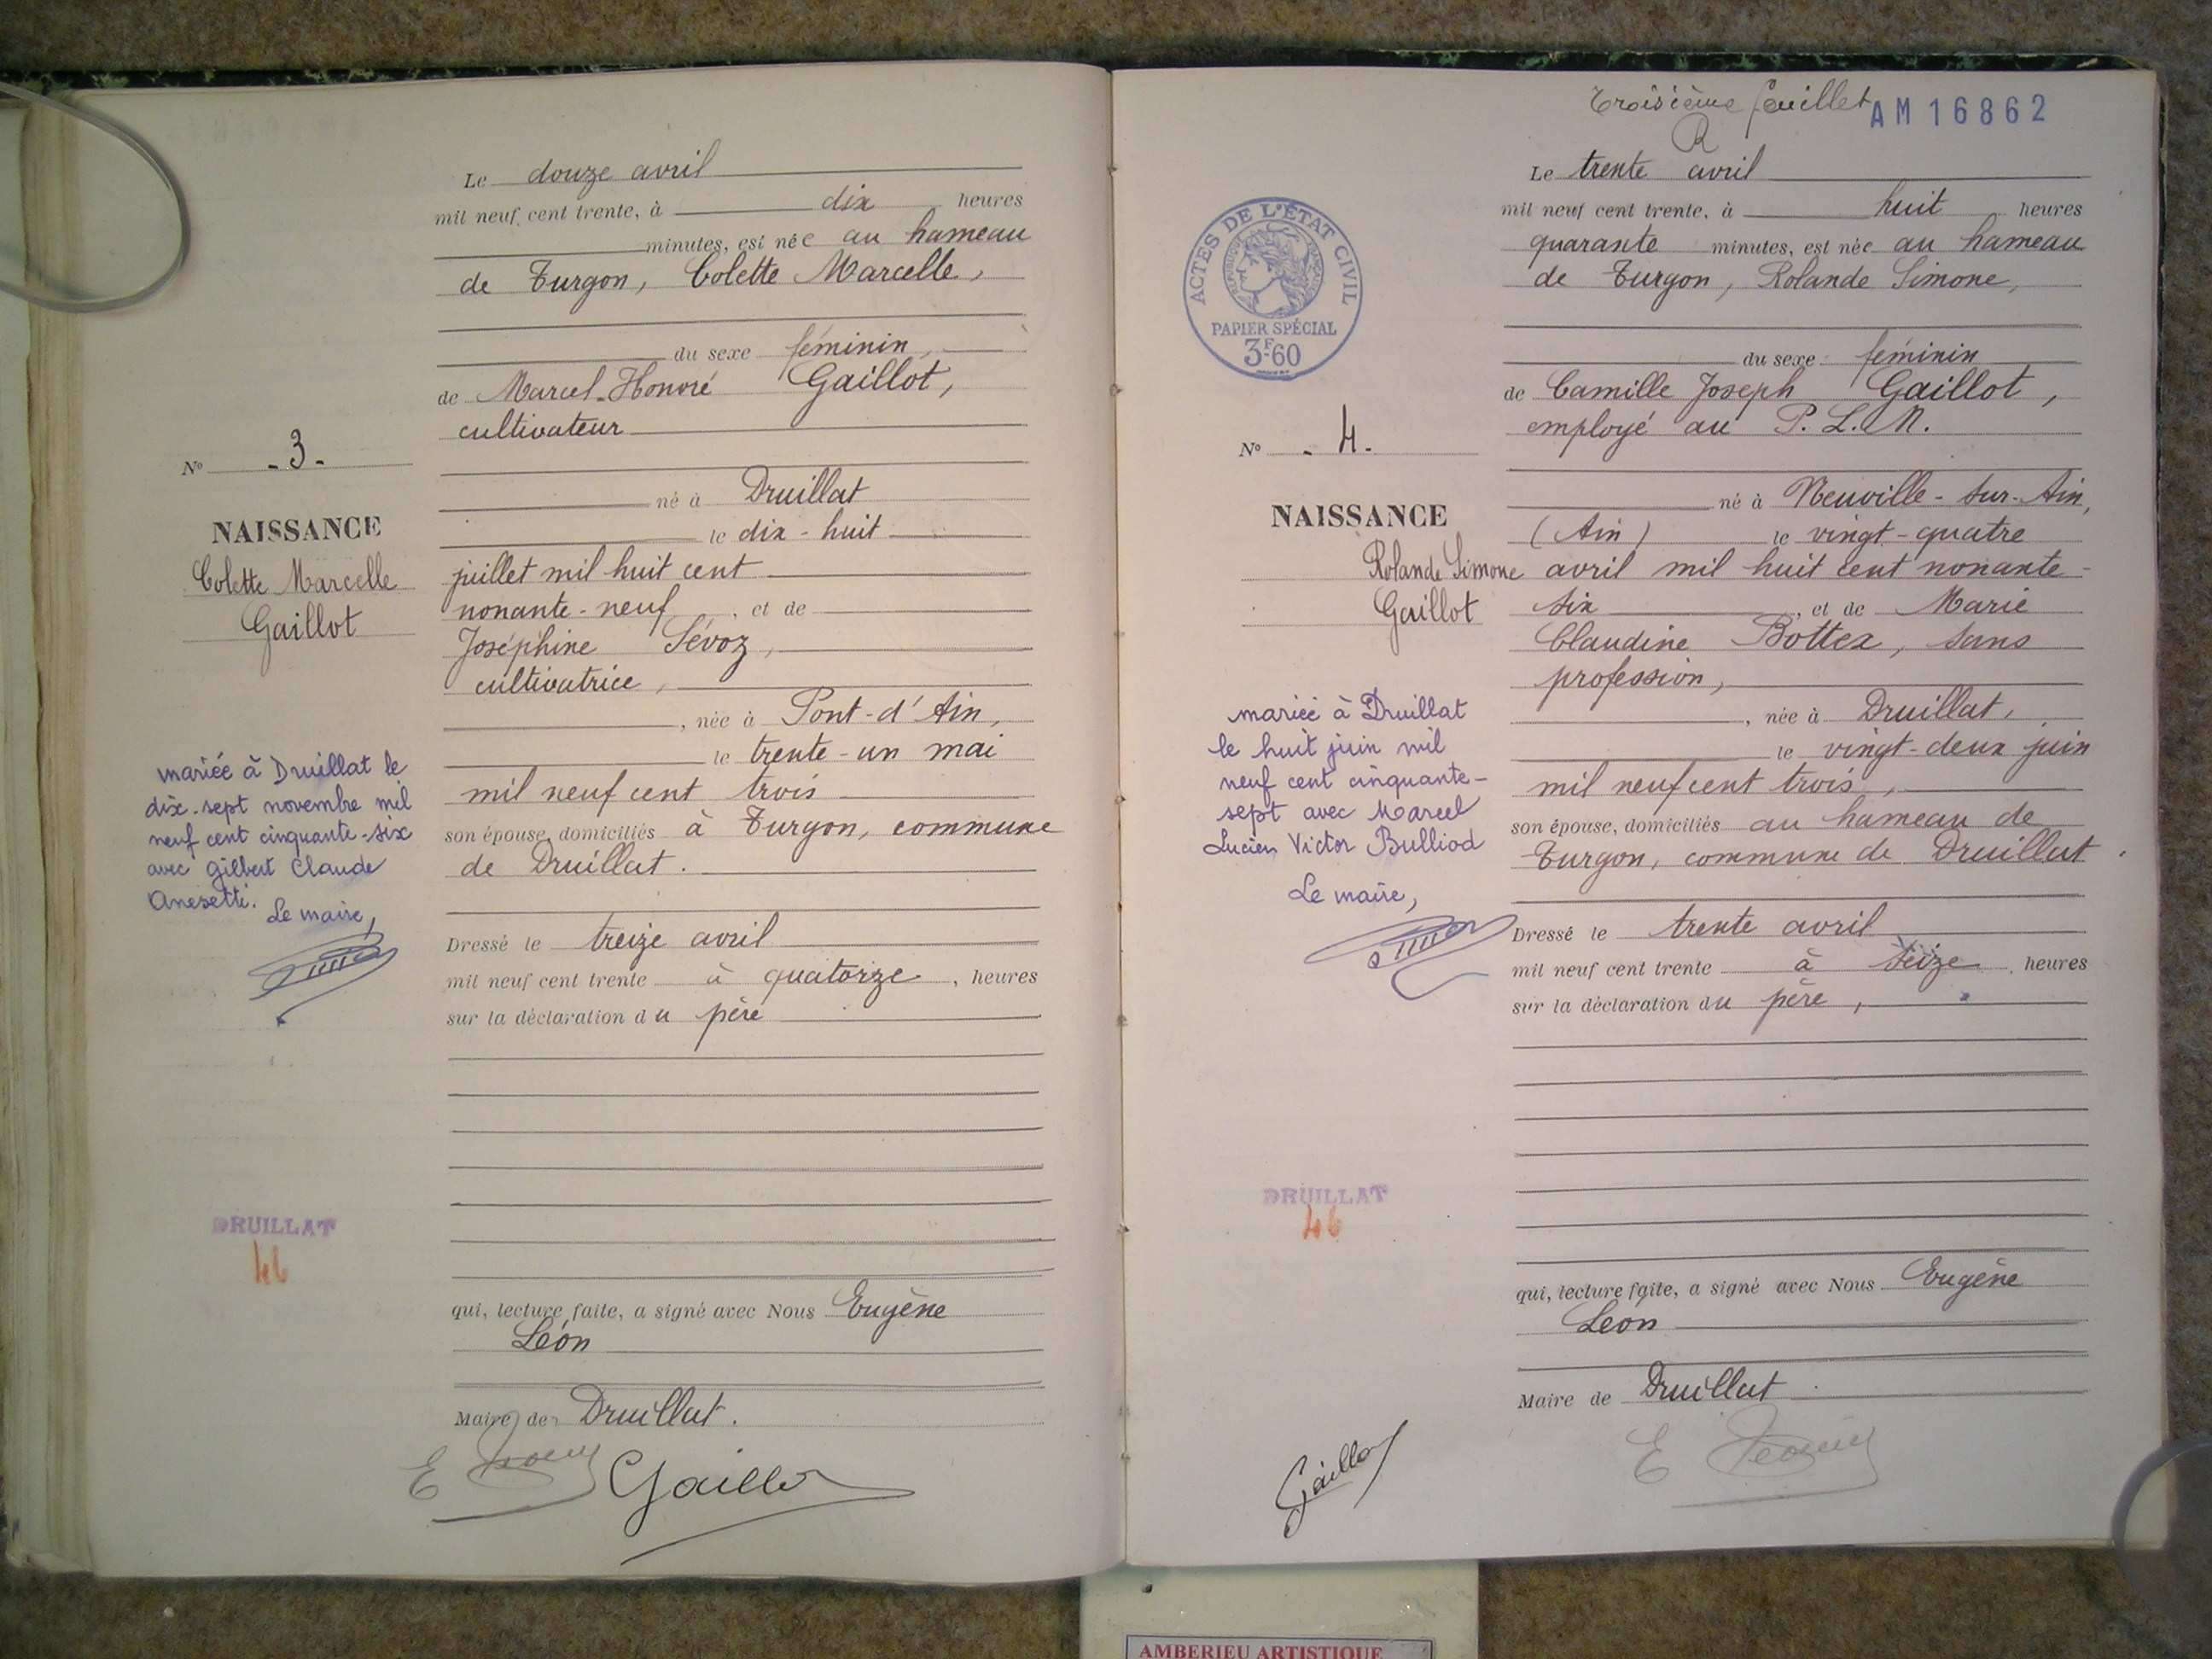 Le douze avril
mil neuf cent trente, à dix heures
minutes, est née au hameau
de Turgon, Colette Marcelle,
du sexe féminin,
de Marcel-Honoré Gaillot,
cultivateur
né à Druillat
le dix-huit
juillet mil huit cent
nonante-neuf, et de
Joséphine Sévoz,
cultivatrice,
, née à Pont-d'Ain,
le trente-un mai
mil neuf cent trois
son épouse, domiciliés à Turgon, commune
de Druillat.
Dressé le treize avril
mil neuf cent trente à quatorze, heures
sur la déclaration du père
qui, lecture faite, a signé avec Nous Eugène
Léon
Maire de Druillat.
E
Gaillot
N° - 3 -
NAISSANCE
Colette Marcelle
Gaillot
mariée à Druillat le
dix-sept novembre mil
neuf cent cinquante-six
avec Gilbert Claude
Anesetti.
Le maire,
DRUILLAT
46
Troisième feuillet
AM 16862
R
Le trente avril
mil neuf cent trente, à huit heures
quarante minutes, est née au hameau
de Turgon, Rolande Simone,
du sexe féminin
de Camille Joseph Gaillot,
employé au P.L.M.
né à Neuville-sur-Ain,
(Ain) le vingt-quatre
avril mil huit cent nonante-
six, et de Marie
Claudine Bottex, sans
profession,
, née à Druillat,
le vingt-deux juin
mil neuf cent trois,
son épouse, domiciliés au hameau de
Turgon, commune de Druillat.
Dressé le trente avril
mil neuf cent trente à seize, heures
sur la déclaration du père,
qui, lecture faite, a signé avec Nous Eugène
Léon
Maire de Druillat
E
Gaillot
ACTES DE L'ÉTAT CIVIL
RÉPUBLIQUE FRANÇAISE
PAPIER SPÉCIAL
3F.60
N° - 4 -
NAISSANCE
Rolande Simone
Gaillot
mariée à Druillat
le huit juin mil
neuf cent cinquante-
sept avec Marcel
Lucien Victor Bulliod
Le maire,
DRUILLAT
46
AMBERIEU ARTISTIQUE